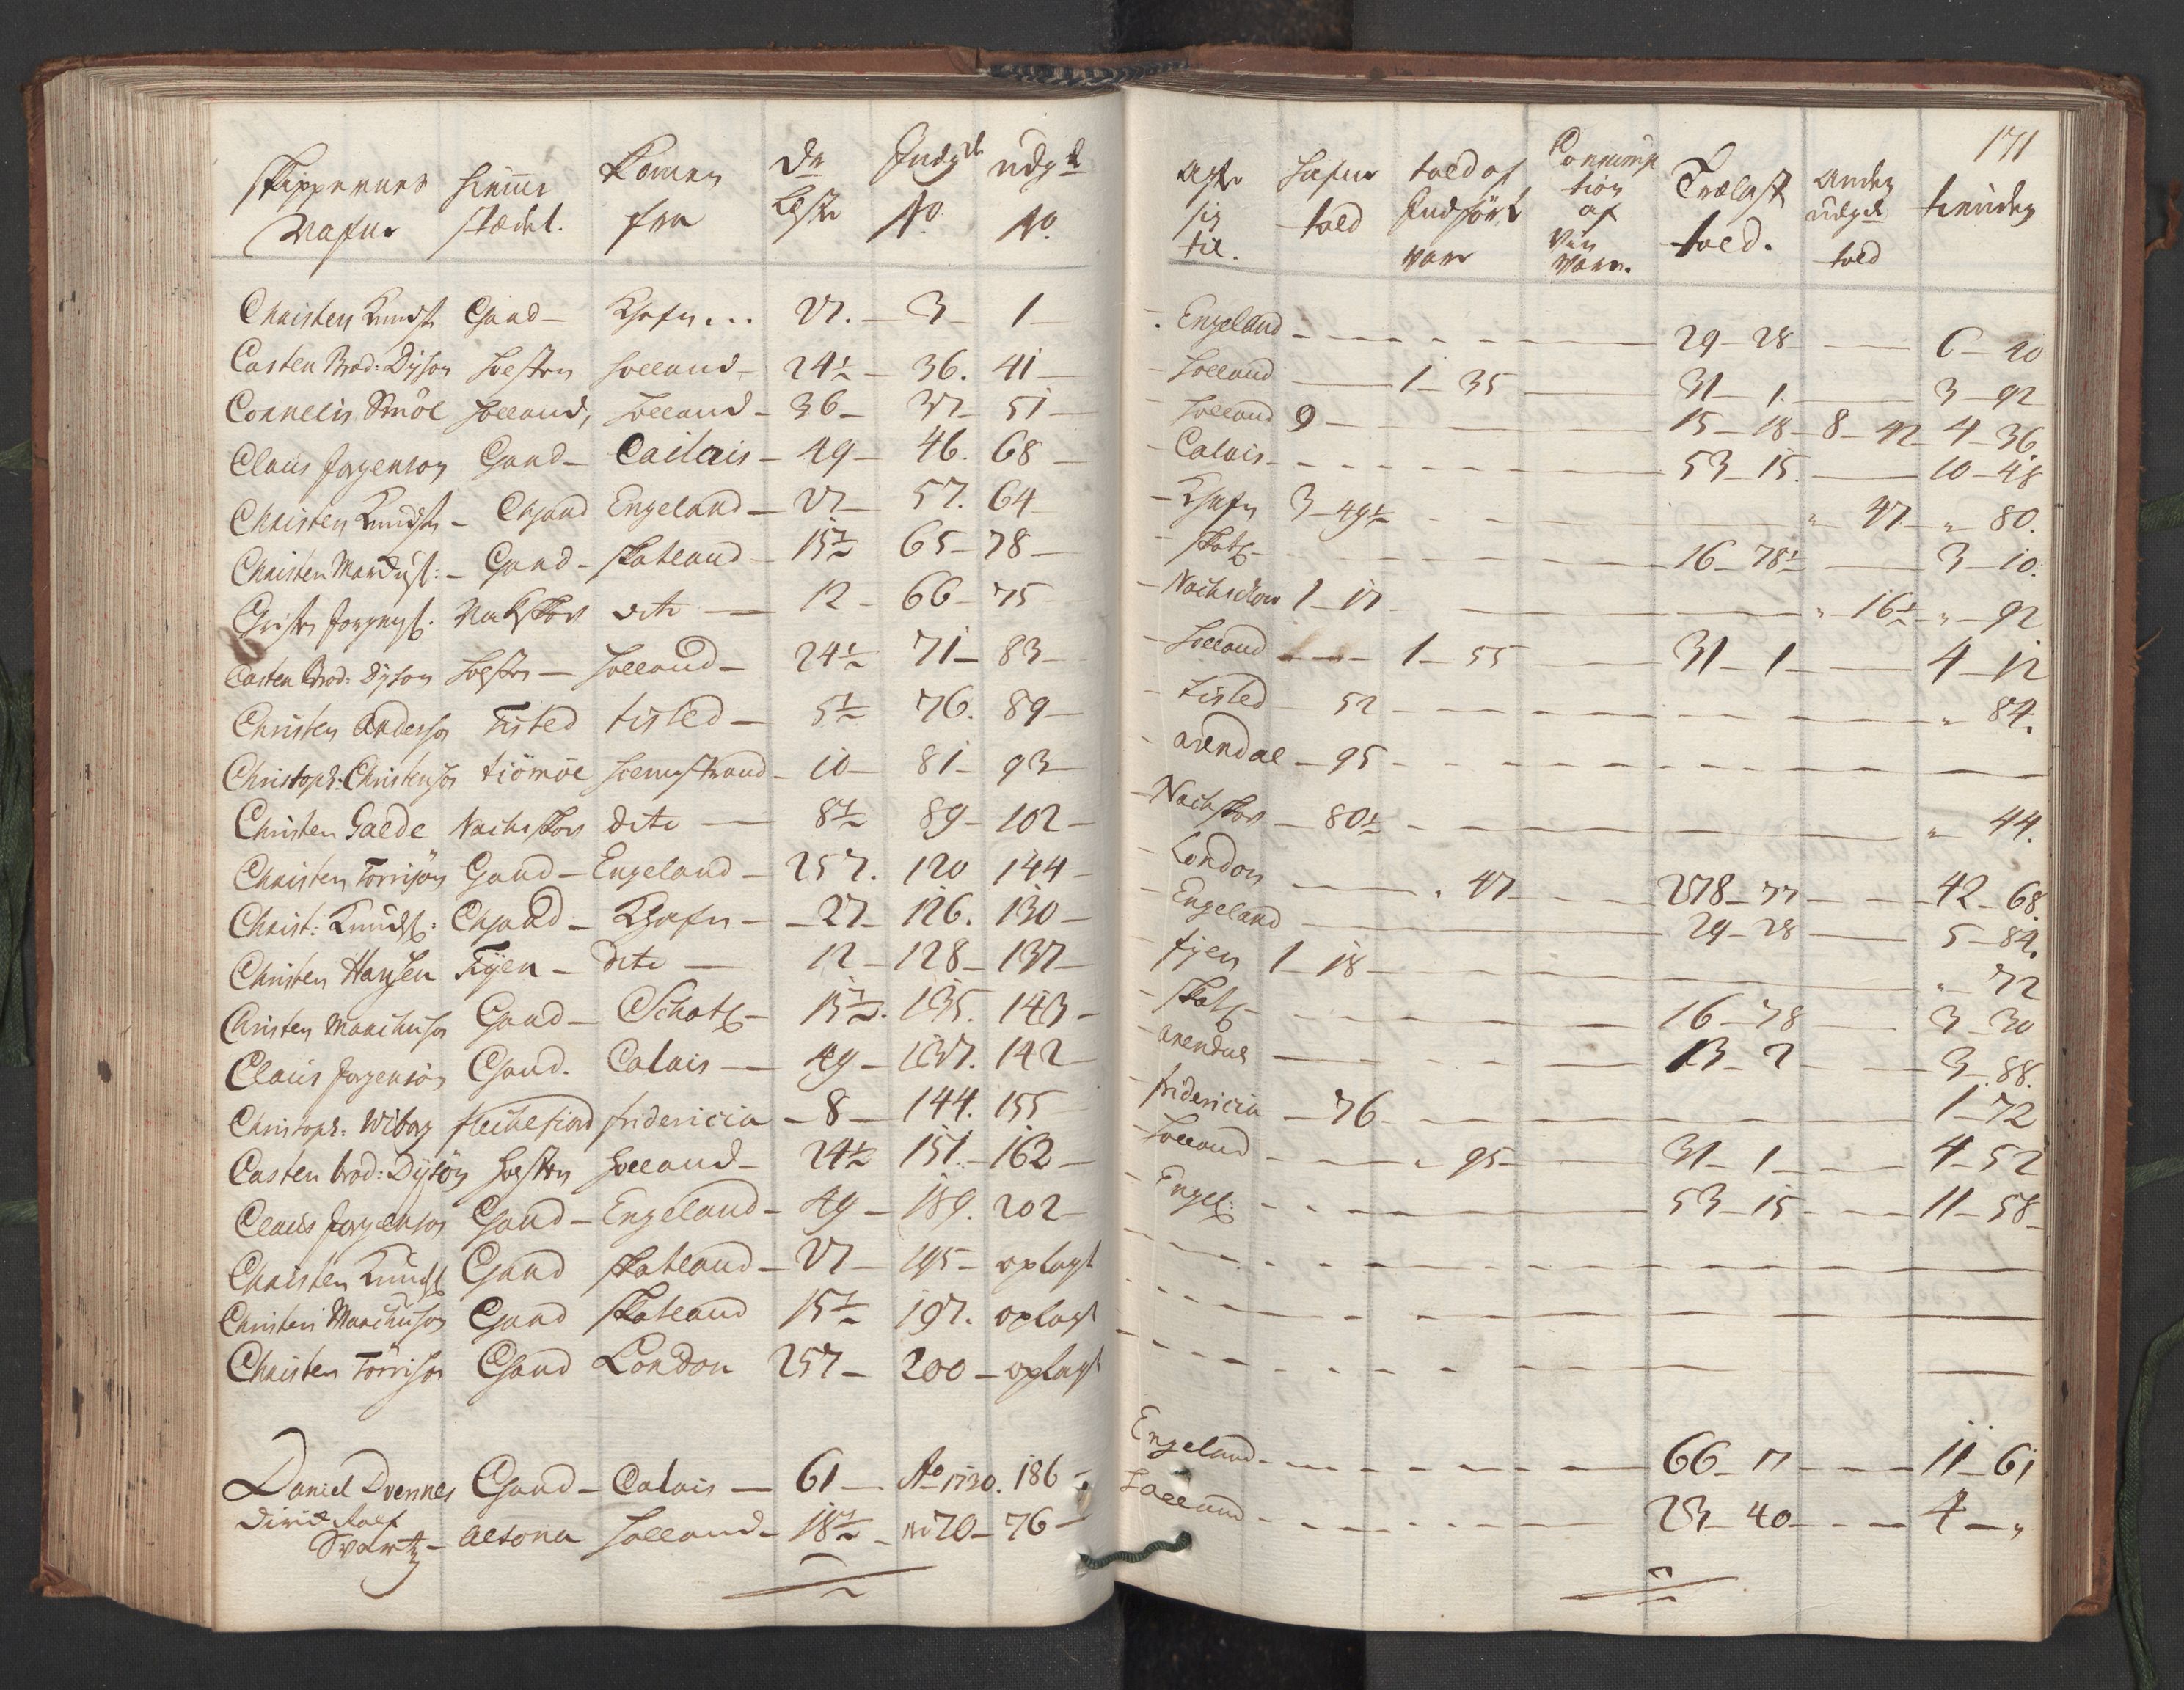 171
Skippernes Nafne | Hiemme stædet. | Komen fra | Dr Lester | Indgde No. | udgde No. | agter sig til. | Hafne told | told af Indført vare | Consumption af Vin vare. | Trælast told. | anden udgde told | tienden
Christen Knuds: Csand - Khafn ... 27. - 3 - 1 - Engeland - 29 - 28 - 6 - 40
Casten Brod: Dyson Holsten Holland - 24½ - 36. 41 - Holland - 1 - 35 - 31 - 1. - 3 - 92
Cornelis Smöl Holland, Holland - 36 - 37 - 51 - Holland 9 - 15 - 18 - 8 - 42 4 - 36.
Claus Jorgenson Csand - Cailais - 49 - 46. 68 - Calais - 53 - 15. - 10 - 48
Christen Knuds: - Chsand Engeland - 27 - 57. 64 - Khafn 3 - 49½ - " 47 - " 80.
Christen : - Csand - Skotland - 15½ 65 - 78 - Skotl: - 16 - 78½ - 3 - 10.
Jorgens: Nakskov dito - 12 - 66 - 75 - Nachschow 1 - 17 - " 16½ " - 92
Casten Brod: Dyson Holsten - Holland - 24½ 71 - 83 - Holland - 1 - 55 - 31 - 1 - 4 - 12
Christen Andersen Tisted tisted - 5½ 76. 89 - tisted - 52 - " 84.
Christoph: Christensen tiömöe Holmestrand - 10 - 81 - 93 - arendal - 95 -
Christen Galde Nachskov dito - 8½ 89 - 102 - Nachskov - 80½ - " 44.
Christen Torrisøn Csand - Engeland - 257. 120 144 - London - " 47 - 278 - 77 - 42 - 68.
Christ: Knuds: Chsand - Khafn - 27 - 126. 130 - Engeland - 29 - 28 - 5 - 84.
Christen Hansen Fyen - dito - 12 - 128 - 137 - fyen 1 - 18 - " 72
Christen Csand - Schotl: - 15½. 135. 143 - Skotl: - 16 - 78 - 3 - 30
Claus Jorgensøn Csand. Calais - 49 - 137. 142 - arendal - 13 - 2 - 3 - 88.
Christoph: Wiborg flechefiord fridericia - 8 - 144. 155 fridericia - 76. - 1 - 72
Casten brod: Dysøn Holsten Holland - 24½ 151. - 162 - Holland - " 95 - 31 - 1 - 4 - 52
Claus Jorgensen Csand - Engeland - 49 - 189. 202 - Engel: - 53 - 15 - 11 - 58 -
Christen Knuds: Csand Skotland - 27 - 195 - oplagt
Christen Csand Skotland 15½ 197. oplagt
Christen Torrisøn Csand London 257 - 200 - oplagt
Daniel Dvennes Csand - Calais - 61 - Ao 1730. 186 - Engeland - 66 - 11 - 11 - 61
Svartz - altona Holland - 18½ - No 70 - 76 - Holland - 23 - 40 - 4 - "